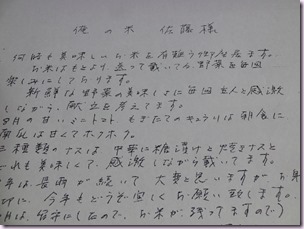 俺の木 佐藤様
何時も美味しいお米を有難う御座居ます。
お米はもとより、送って戴いてる野菜を毎回
楽しみにしております。
新鮮な野菜の美味しさに毎回主人と感激
しながら、献立を考えてます。
月の甘いミニトマト もぎたてのきゅうりは朝食に
南瓜は甘くてホクホク。
三種類のナスは、中華に糖漬けと焼きナスと
どれも美味しくて、感激しながら戴いてます。
年は、長雨が続いて、大変と思いますが、お身
に、今年もどうぞ宜しくお願い致します。
月は、留守にしたので、お米が残ってますので)